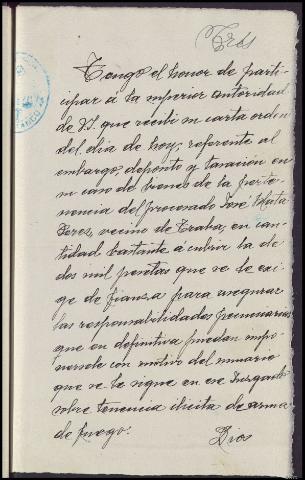 Tres
Tengo el honor de parti-
cipar á la superior autoridad
de V.I. que recibi su carta orden
del dia de hoy, referente al
embargo, depósito y tasación en
su caso de bienes de la perte-
nencia del procesado José
Perez, vecino de Traba, en can-
tidad bastante á cubrir la de
dos mil pesetas que se le exi-
ge de fianza para asegurar
las responsabilidades pecuniarias
que en definitiva puedan impo-
nersele con motivo del sumario
que se le sigue en ese Juzgado
sobre tenencia ilícita de arma
de fuego.
Dios